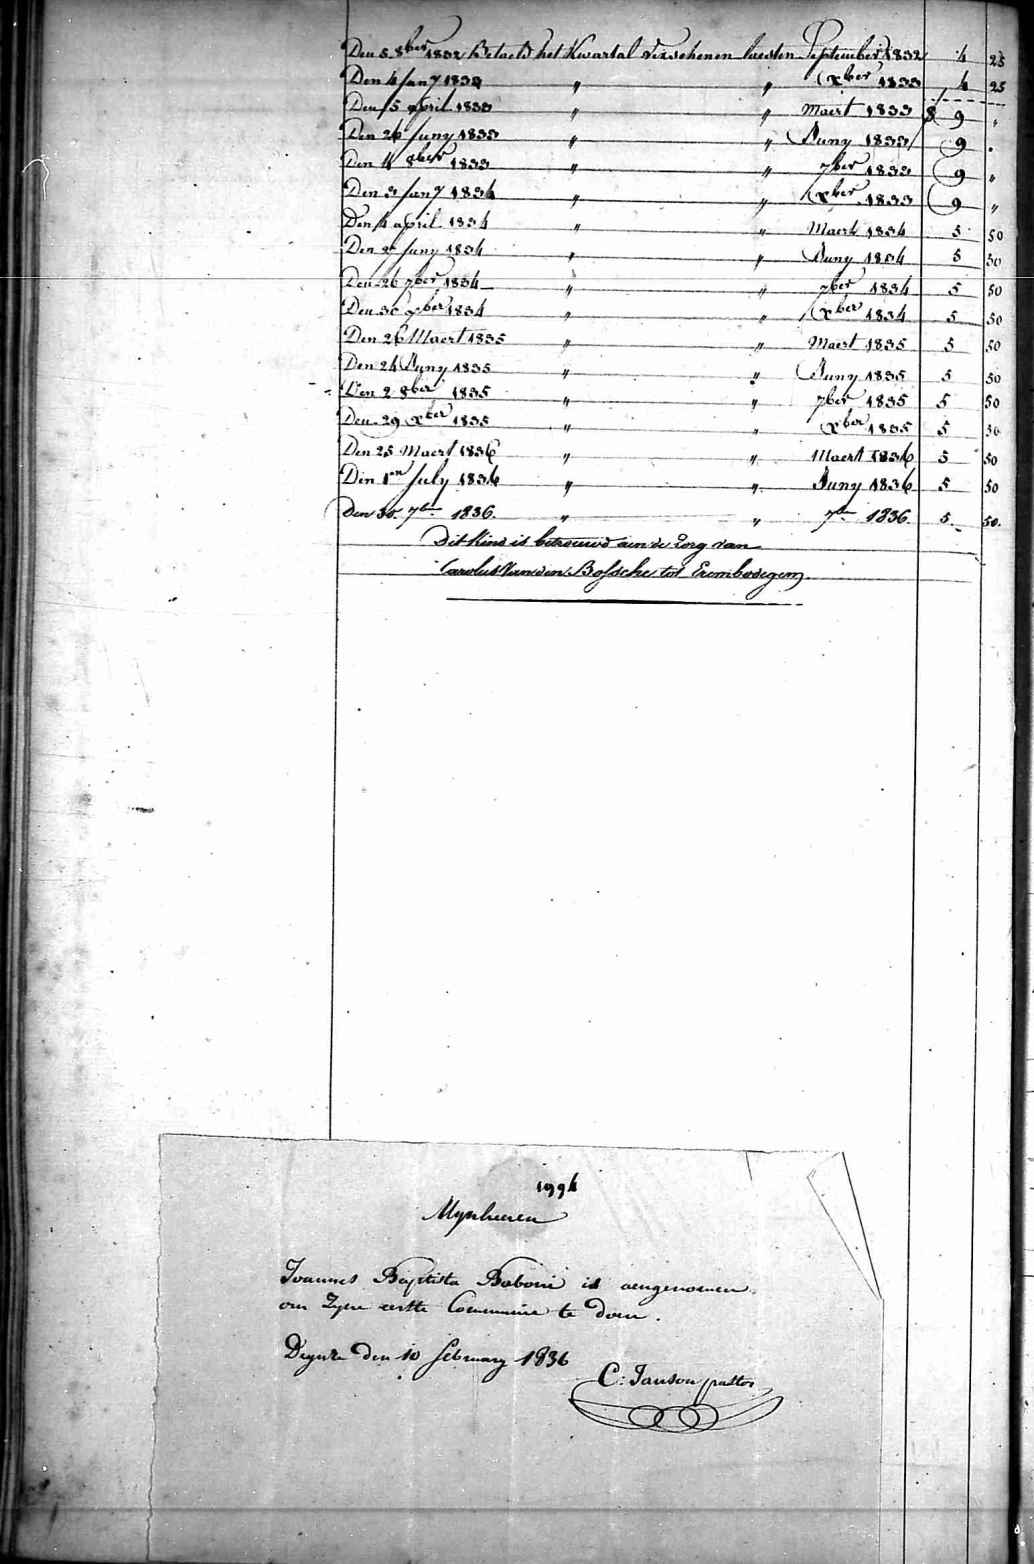 Den 5 8ber 1832 Betaeld het Kwartal verschenen laesten September 1832 4 25
Den 4 Jany 1833 " " xber 1833 4 25
Den 5 april 1833 " " Maert 1833 9 "
Den 26 Juny 1833 " " Juny 1833 9 "
Den 4 8ber 1833 " " 7ber 1833 9 "
Den 3 Jany 1834 " " xber 1833 9 "
Den 4 april 1834 " " Maert 1834 5 50
Den 2 Juny 1834 " " Juny 1834 5 50
Den 26 7ber 1834 " " 7ber 1834 5 50
Den 30 xber 1834 " " xber 1834 5 50
Den 26 Maert 1835 " " Maert 1835 5 50
Den 24 Juny 1835 " " Juny 1835 5 50
Den 2 8ber 1835 " " 7ber 1835 5 50
Den 29 xber 1835 " " xber 1835 5 50
Den 25 Maert 1836 " " Maert 1836 5 50
Den 1en July 1836 " " Juny 1836 5 50
Den 30 7br 1836. " " 7br 1836. 5. 50.
Dit Kind is betrouwd aen de Zorg van
Carolus Van den Bossche tot Erembodegem.
1994
Mynheeren
Joannes Baptista Baboni is aengenomen
om Zyne eerste Communie te doen.
Deynze den 10 february 1836
C: Janson pastor